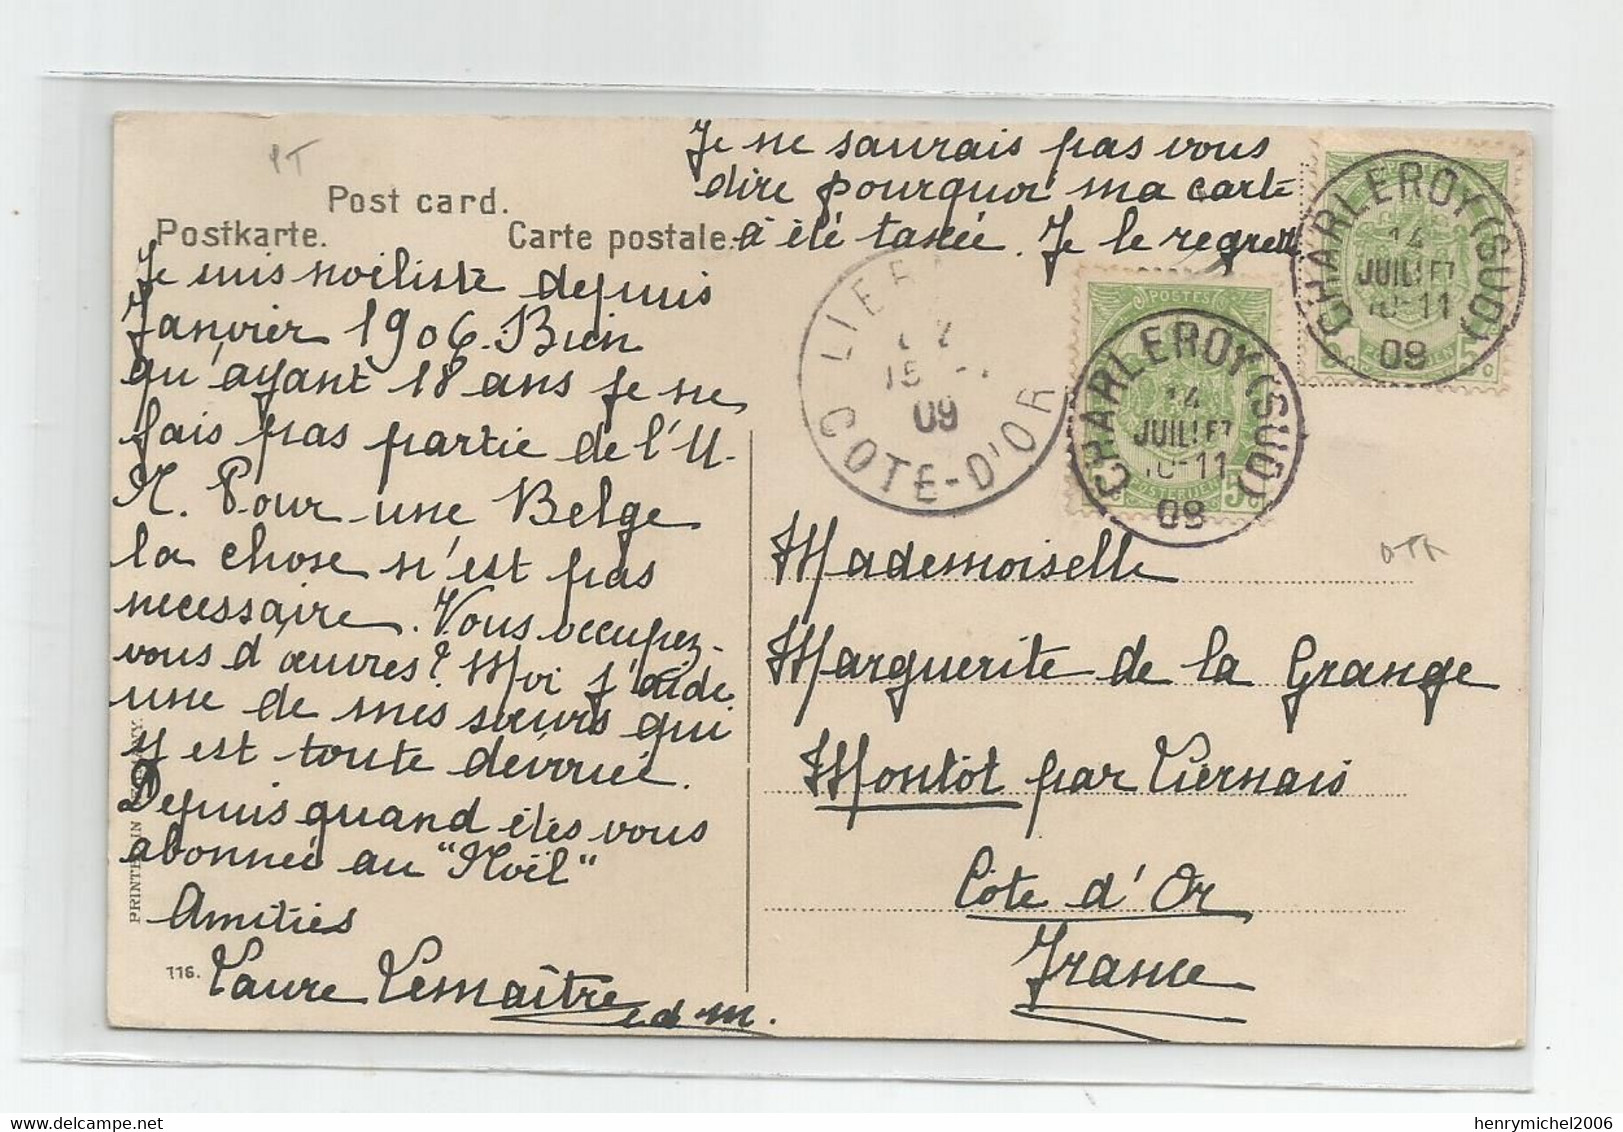 Je ne saurais pas vous
dire pourquoi ma carte
à été taxée. Je le regrette
Post card.
Postkarte. Carte postale.
Je suis noëliste depuis
Janvier 1906. Bien
qu'ayant 18 ans je ne
fais pas partie de l'U.
N. Pour une Belge
la chose n'est pas
necessaire. Vous occupez-
vous d'œuvres? Moi j'aide
une de mes sœurs qui
y est toute dévouée.
Depuis quand êtes vous
abonnée au "Noël"
Amitiés
Laure Lemaître
e d m.
116.
PRINTED IN
CHARLEROY (SUD)
14
JUILLET
10-11
09
POSTES
POSTERIJEN
5c
CHARLEROY (SUD)
14
JUILLET
10-11
09
5c
LIER
15
09
COTE-D'OR
Mademoiselle
Marguerite de la Grange
Montot par Liernais
Côte d'Or
France
henrymichel2006